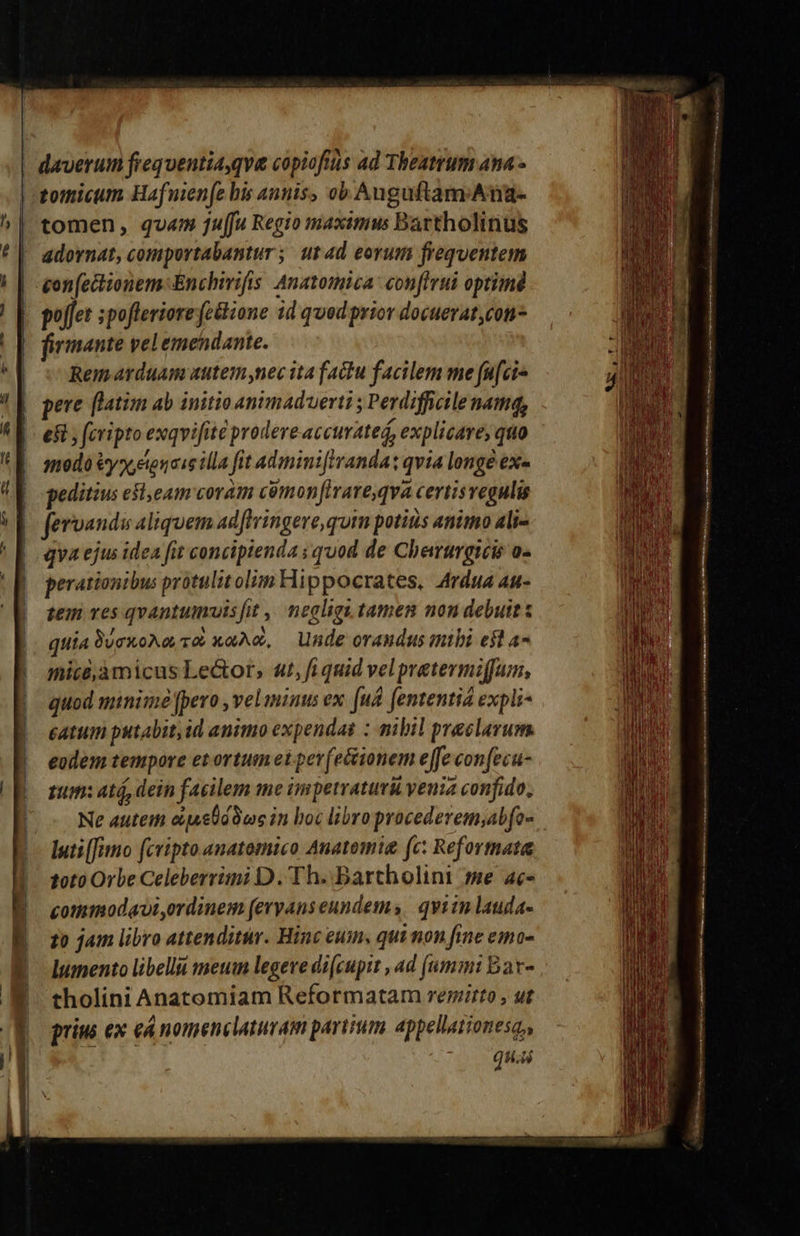 daverum freqventia,qvæ copiosiùs ad Theatrum ana-
tomicum Hafniense his annis, ob Augustam Ana-
tomen, qvam jussu Regio maximus Bartholinus
adornat, comportabantur; ut ad eorum freqventem
consectionem Enchirisis Anatomica construi optimè
posset; posteriore sectione id qvod prior docuerat, con-
firmante vel emendante.
Rem arduam autem, nec ita factu facilem me susci-
pere statim ab initio animadverti; Perdifficile namq́,
est, scripto exqvisitè prodere accurateq́, explicare, quo
modo ἐγχείρησις illa sit administranda; qvia longè ex-
peditius est, eam coràm cōmonstrare, qvā certis regulis
servandis aliquem adstringere, quin potiùs animo ali-
qva ejus idea sit concipienda; quod de Cheirurgicis o-
perationibus protulit olim Hippocrates, Ardua au-
tem res qvantumvis sit, negligi tamen non debuit:
quia δύσκολα τὰ καλὰ, Unde orandus mihi est a-
micè, amicus Lector, ut, si quid vel prætermissum,
quod minimè spero, vel minus ex suâ sententiâ expli-
catum putabit, id animo expendat: nihil præclarum
eodem tempore et ortum et perfectionem esse consecu-
tum: atq́, dein facilem me impetraturū veniā confido.
Ne autem ἀμεθόδως in hoc libro procederem, abso-
lutissimo scripto anatomico Anatomiæ sc: Reformatæ
toto Orbe Celeberrimi D. Th. Bartholini me ac-
commodavi, ordinem servans eundem, qvi in lauda-
to jam libro attenditur. Hinc eum, qui non sine emo-
lumento libellū meum legere discupit, ad summi Bar-
tholini Anatomiam Reformatam remitto, ut
prius ex eâ nomenclaturam partium appellationesq́,
quas